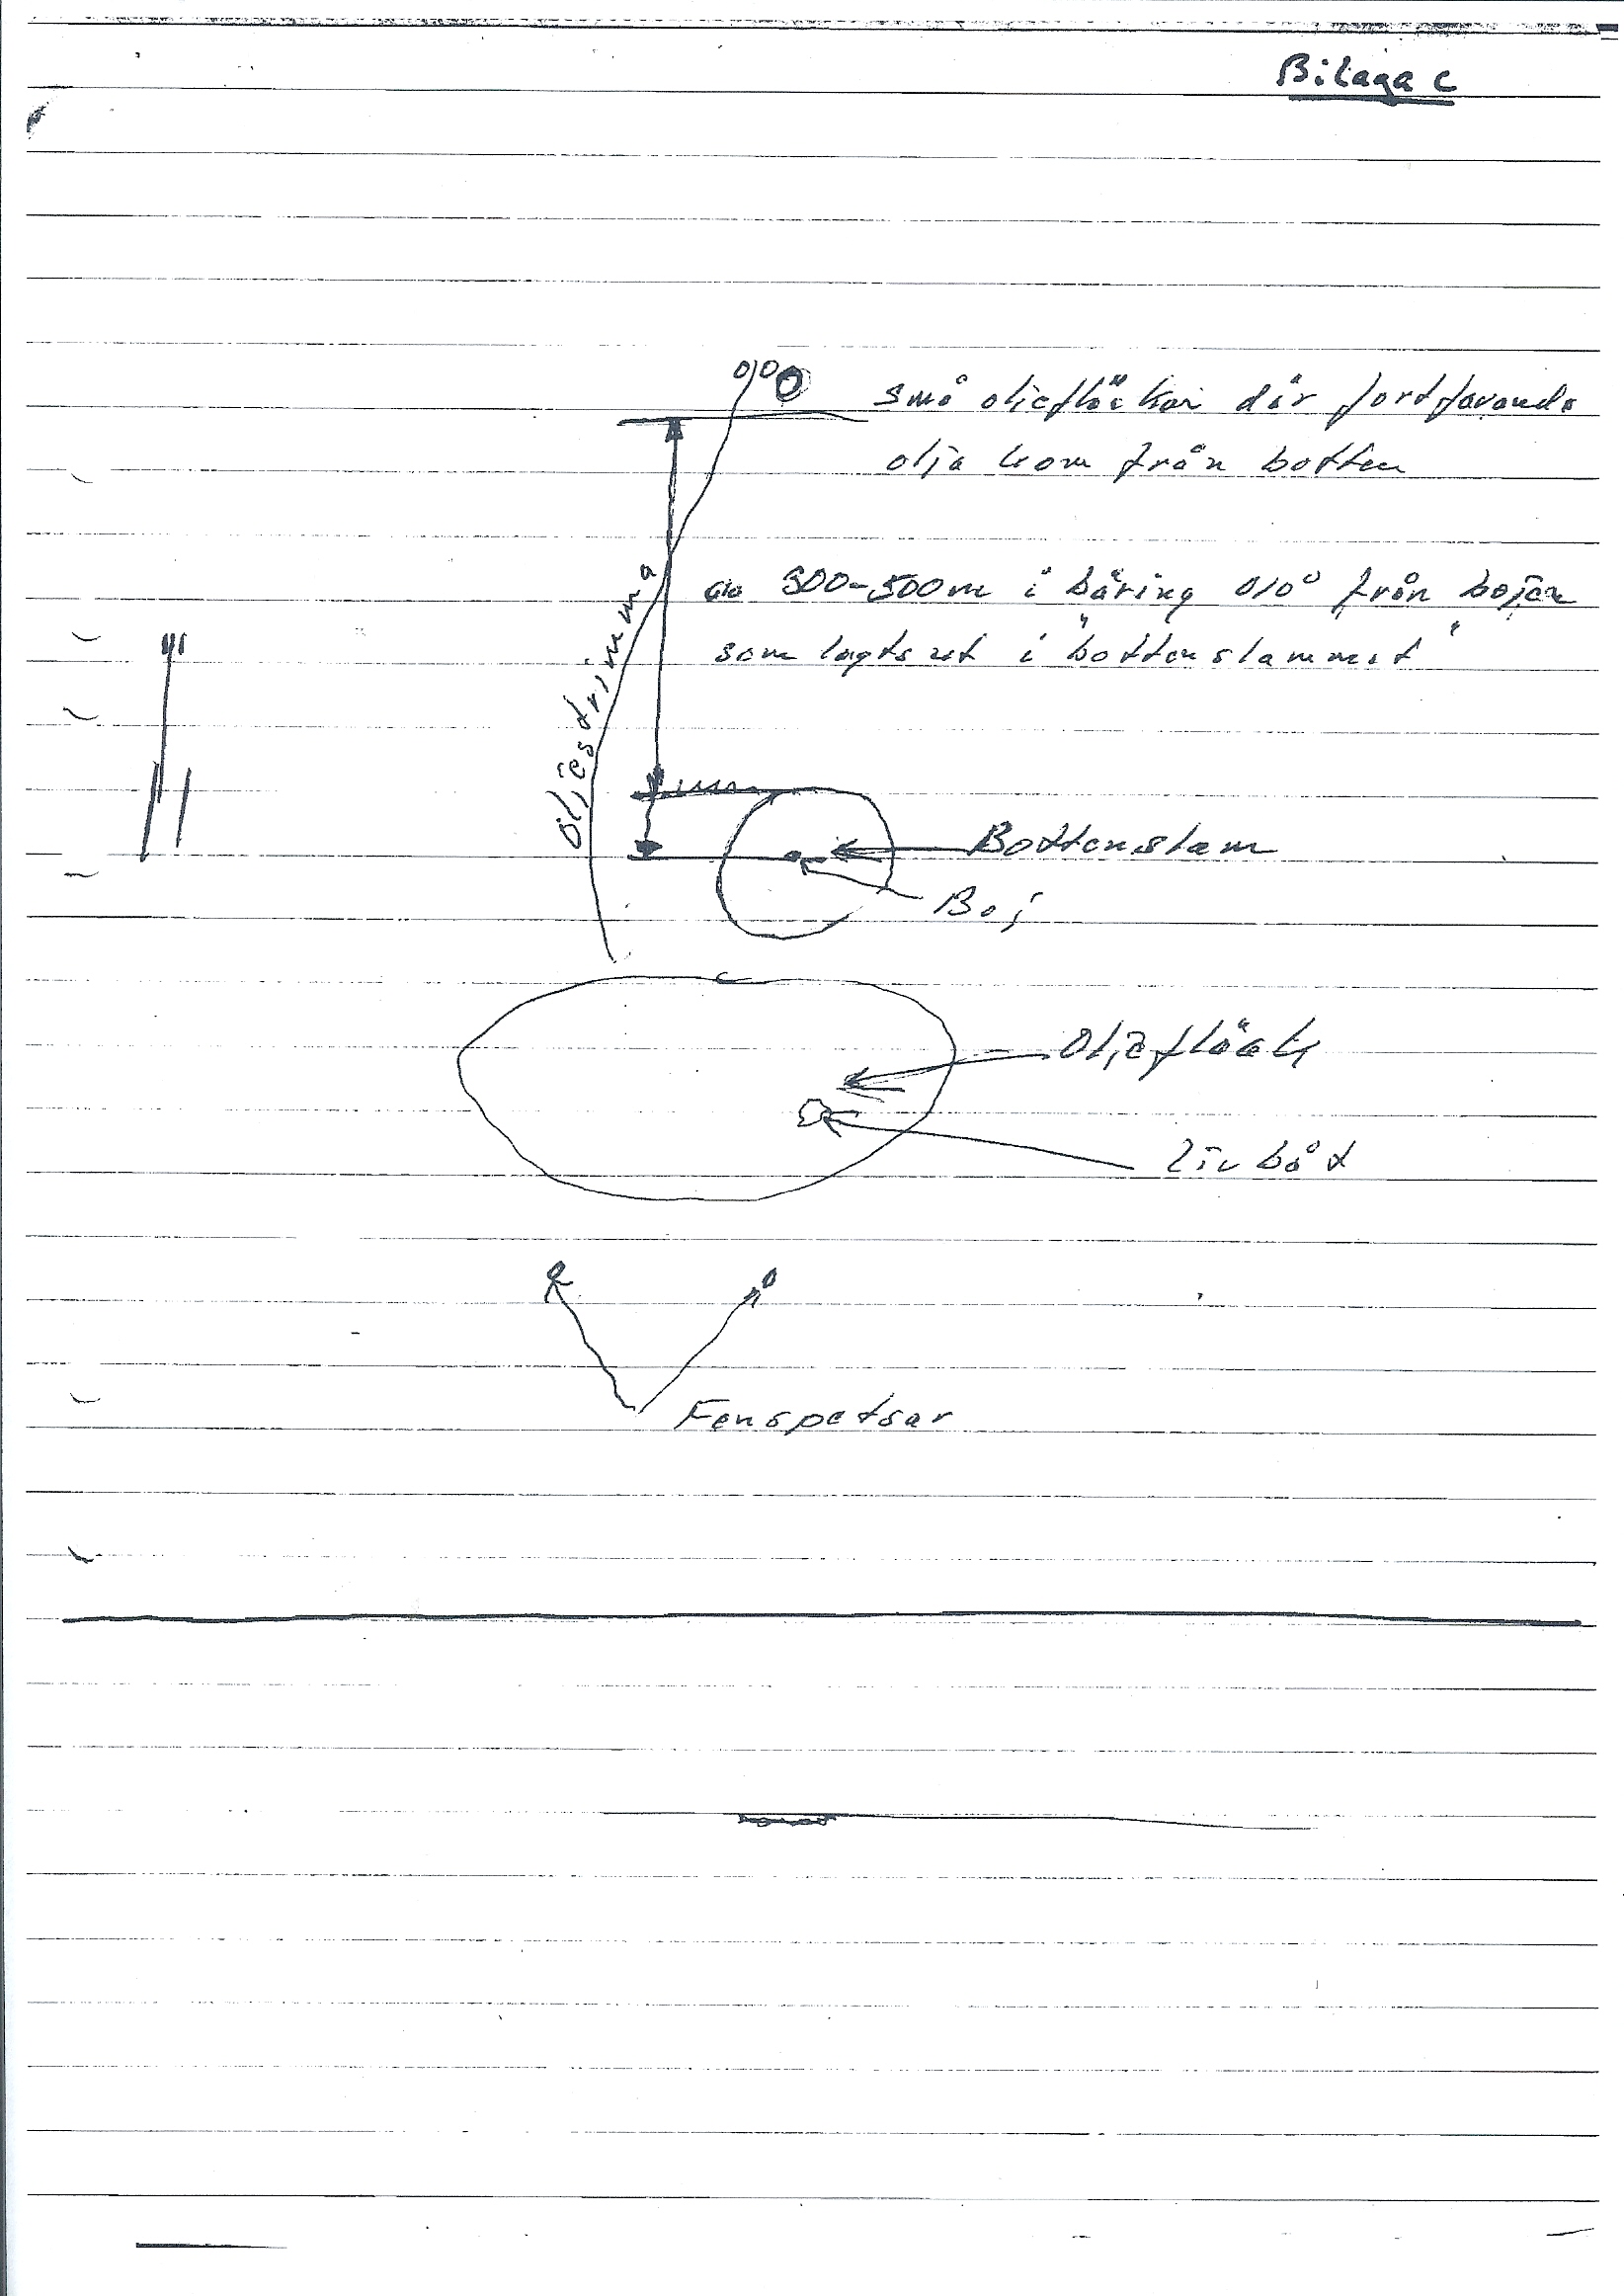 Bilaga C
små oljefläckar där fortfarande
olja kom från botten
ca 300-500m i båring 010° från bojen
som lagts ut i "bottenslammet"
Oljestrimma
Bottenslam
Boj
Oljefläck
Livbåt
Fenspetsar